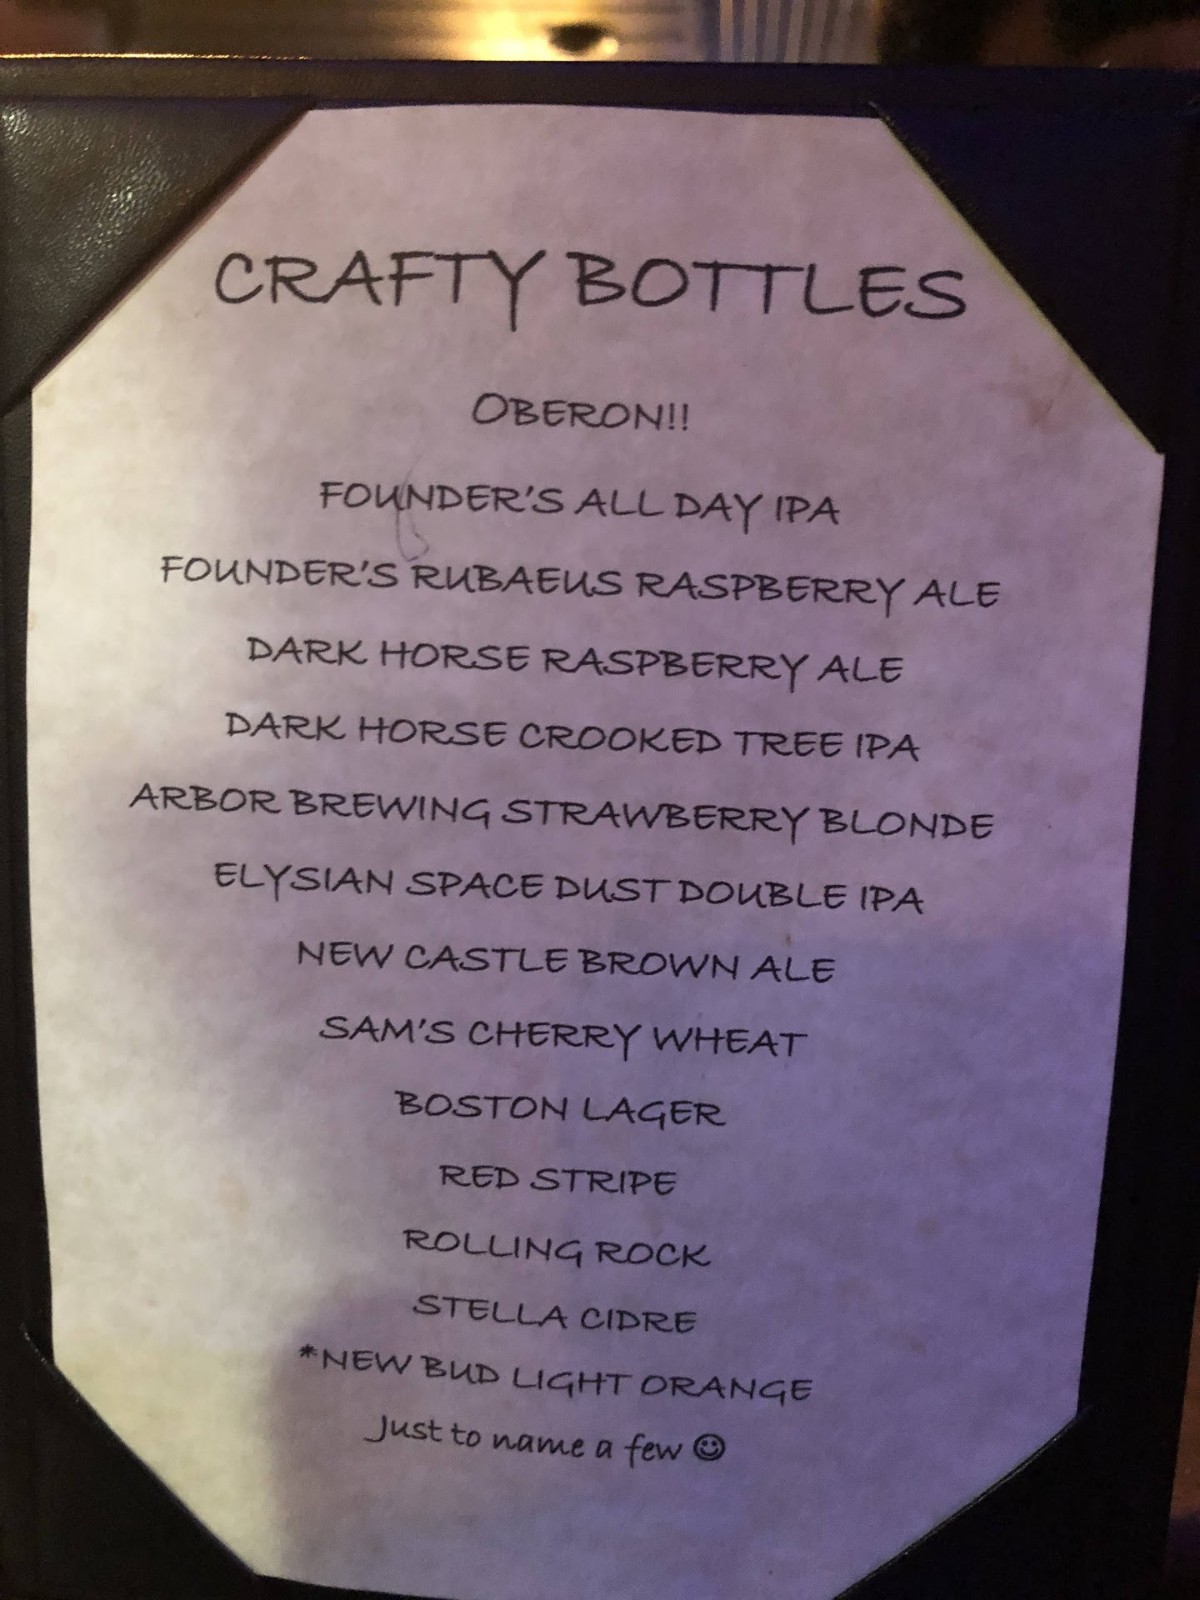 CRAFTY BOTTLES
OBERON!!
FOUNDER'S ALL DAY IPA
FOUNDER'S RUBAEUS RASPBERRY ALE
DARK HORSE RASPBERRY ALE
DARK HORSE CROOKED TREE IPA
ARBOR BREWING STRAWBERRY BLONDE
ELYSIAN SPACE DUST DOUBLE IPA
NEW CASTLE BROWN ALE
SAM'S CHERRY WHEAT
BOSTON LAGER
RED STRIPE
ROLLING ROCK
STELLA CIDRE
*NEW BUD LIGHT ORANGE
Just to name a few ☺